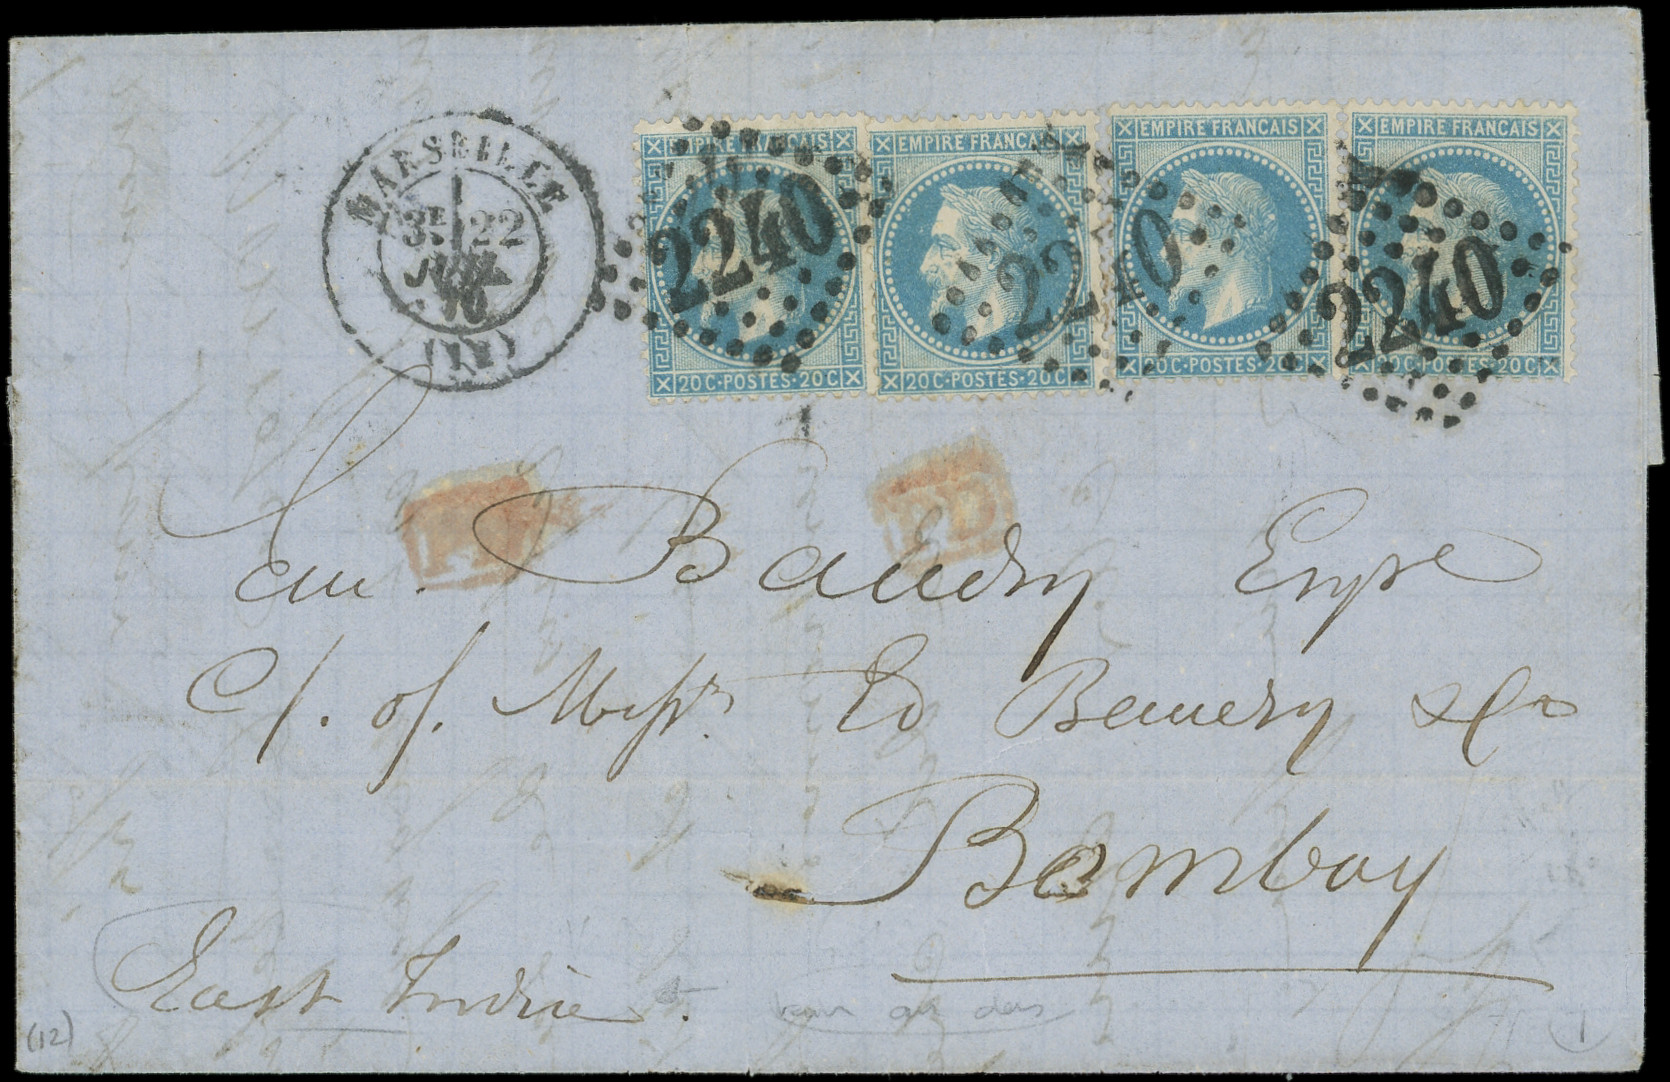 MARSEILLE
3E 22
JUIL
70
(12)
EMPIRE FRANCAIS
20 C · POSTES · 20 C
2240
EMPIRE FRANCAIS
20 C · POSTES · 20 C
2240
EMPIRE FRANCAIS
20 C · POSTES · 20 C
EMPIRE FRANCAIS
20 C · POSTES · 20 C
2240
PD
PD
Baudry
C/. of. Messrs. Ed Beaudry & Co
Bombay
East Indie.
(12)
1